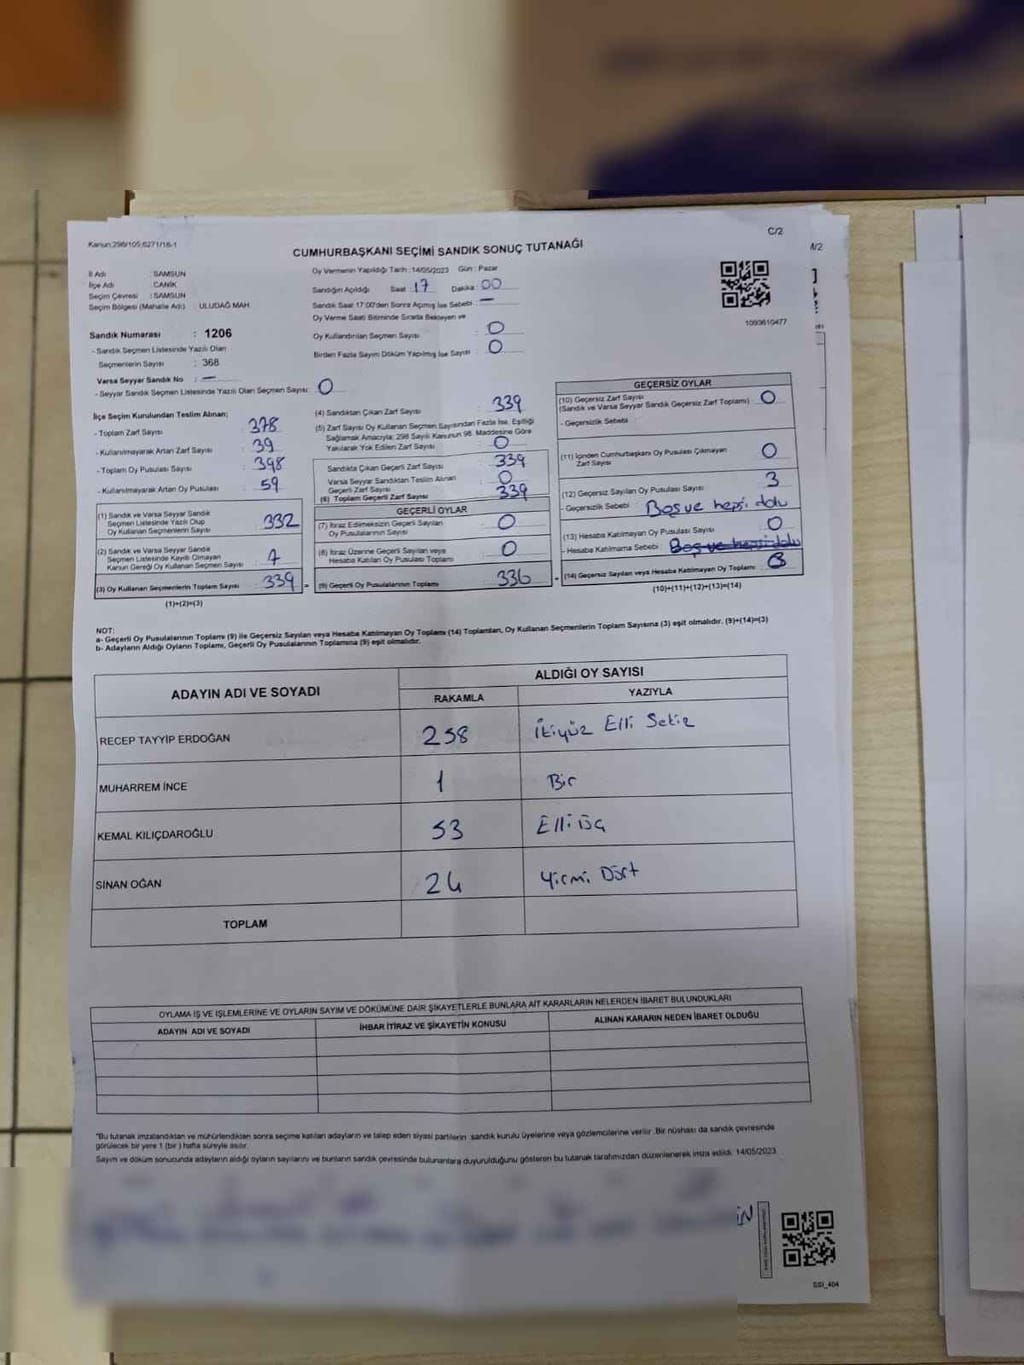 Kanun:298/105;6271/16-1
C/2
CUMHURBAŞKANI SEÇİMİ SANDIK SONUÇ TUTANAĞI
İl Adı : SAMSUN
İlçe Adı : CANİK
Seçim Çevresi : SAMSUN
Seçim Bölgesi (Mahalle Adı) : ULUDAĞ MAH.
Oy Vermenin Yapıldığı Tarih : 14/05/2023 Gün : Pazar
Sandığın Açıldığı Saat 17 Dakika 00
Sandık Saat 17:00'den Sonra Açılmış İse Sebebi : —
Oy Verme Saati Bitiminde Sırada Bekleyen ve
Oy Kullandırılan Seçmen Sayısı : 0
Birden Fazla Sayım Döküm Yapılmış İse Sayısı : 0
1093610477
Sandık Numarası : 1206
- Sandık Seçmen Listesinde Yazılı Olan
Seçmenlerin Sayısı : 368
Varsa Seyyar Sandık No : —
- Seyyar Sandık Seçmen Listesinde Yazılı Olan Seçmen Sayısı: 0
İlçe Seçim Kurulundan Teslim Alınan;
- Toplam Zarf Sayısı 378
- Kullanılmayarak Artan Zarf Sayısı 39
- Toplam Oy Pusulası Sayısı 398
- Kullanılmayarak Artan Oy Pusulası 59
(1) Sandık ve Varsa Seyyar Sandık
Seçmen Listesinde Yazılı Olup
Oy Kullanan Seçmenlerin Sayısı 332
(2) Sandık ve Varsa Seyyar Sandık
Seçmen Listesinde Kayıtlı Olmayan
Kanun Gereği Oy Kullanan Seçmen Sayısı 7
(3) Oy Kullanan Seçmenlerin Toplam Sayısı 339
(1)+(2)=(3)
(4) Sandıktan Çıkan Zarf Sayısı 339
(5) Zarf Sayısı Oy Kullanan Seçmen Sayısından Fazla İse, Eşitliği
Sağlamak Amacıyla; 298 Sayılı Kanunun 98. Maddesine Göre
Yakılarak Yok Edilen Zarf Sayısı 0
Sandıkta Çıkan Geçerli Zarf Sayısı 339
Varsa Seyyar Sandıktan Teslim Alınan
Geçerli Zarf Sayısı 0
(6) Toplam Geçerli Zarf Sayısı 339
GEÇERLİ OYLAR
(7) İtiraz Edilmeksizin Geçerli Sayılan
Oy Pusulalarının Sayısı 0
(8) İtiraz Üzerine Geçerli Sayılan veya
Hesaba Katılan Oy Pusulası Toplamı 0
(9) Geçerli Oy Pusulalarının Toplamı 336
GEÇERSİZ OYLAR
(10) Geçersiz Zarf Sayısı
(Sandık ve Varsa Seyyar Sandık Geçersiz Zarf Toplamı) 0
- Geçersizlik Sebebi
(11) İçinden Cumhurbaşkanı Oy Pusulası Çıkmayan
Zarf Sayısı 0
(12) Geçersiz Sayılan Oy Pusulası Sayısı 3
- Geçersizlik Sebebi Boş ve hepsi dolu
(13) Hesaba Katılmayan Oy Pusulası Sayısı 0
- Hesaba Katılmama Sebebi Boş ve hepsi dolu
(14) Geçersiz Sayılan veya Hesaba Katılmayan Oy Toplamı 3
(10)+(11)+(12)+(13)=(14)
NOT:
a- Geçerli Oy Pusulalarının Toplamı (9) ile Geçersiz Sayılan veya Hesaba Katılmayan Oy Toplamı (14) Toplamları, Oy Kullanan Seçmenlerin Toplam Sayısına (3) eşit olmalıdır. (9)+(14)=(3)
b- Adayların Aldığı Oyların Toplamı, Geçerli Oy Pusulalarının Toplamına (9) eşit olmalıdır.
ADAYIN ADI VE SOYADI
ALDIĞI OY SAYISI
RAKAMLA YAZIYLA
RECEP TAYYİP ERDOĞAN 258 İkiyüz Elli Sekiz
MUHARREM İNCE 1 Bir
KEMAL KILIÇDAROĞLU 53 Elli üç
SİNAN OĞAN 24 Yirmi Dört
TOPLAM
OYLAMA İŞ VE İŞLEMLERİNE VE OYLARIN SAYIM VE DÖKÜMÜNE DAİR ŞİKAYETLERLE BUNLARA AİT KARARLARIN NELERDEN İBARET BULUNDUKLARI
ADAYIN ADI VE SOYADI İHBAR İTİRAZ VE ŞİKAYETİN KONUSU ALINAN KARARIN NEDEN İBARET OLDUĞU
"Bu tutanak imzalandıktan ve mühürlendikten sonra seçime katılan adayların ve talep eden siyasi partilerin sandık kurulu üyelerine veya gözlemcilerine verilir. Bir nüshası da sandık çevresinde
görülecek bir yere 1 (bir) hafta süreyle asılır.
Sayım ve döküm sonucunda adayların aldığı oyların sayılarını ve bunların sandık çevresinde bulunanlara duyurulduğunu gösteren bu tutanak tarafımızdan düzenlenerek imza edildi. 14/05/2023
SSI_404